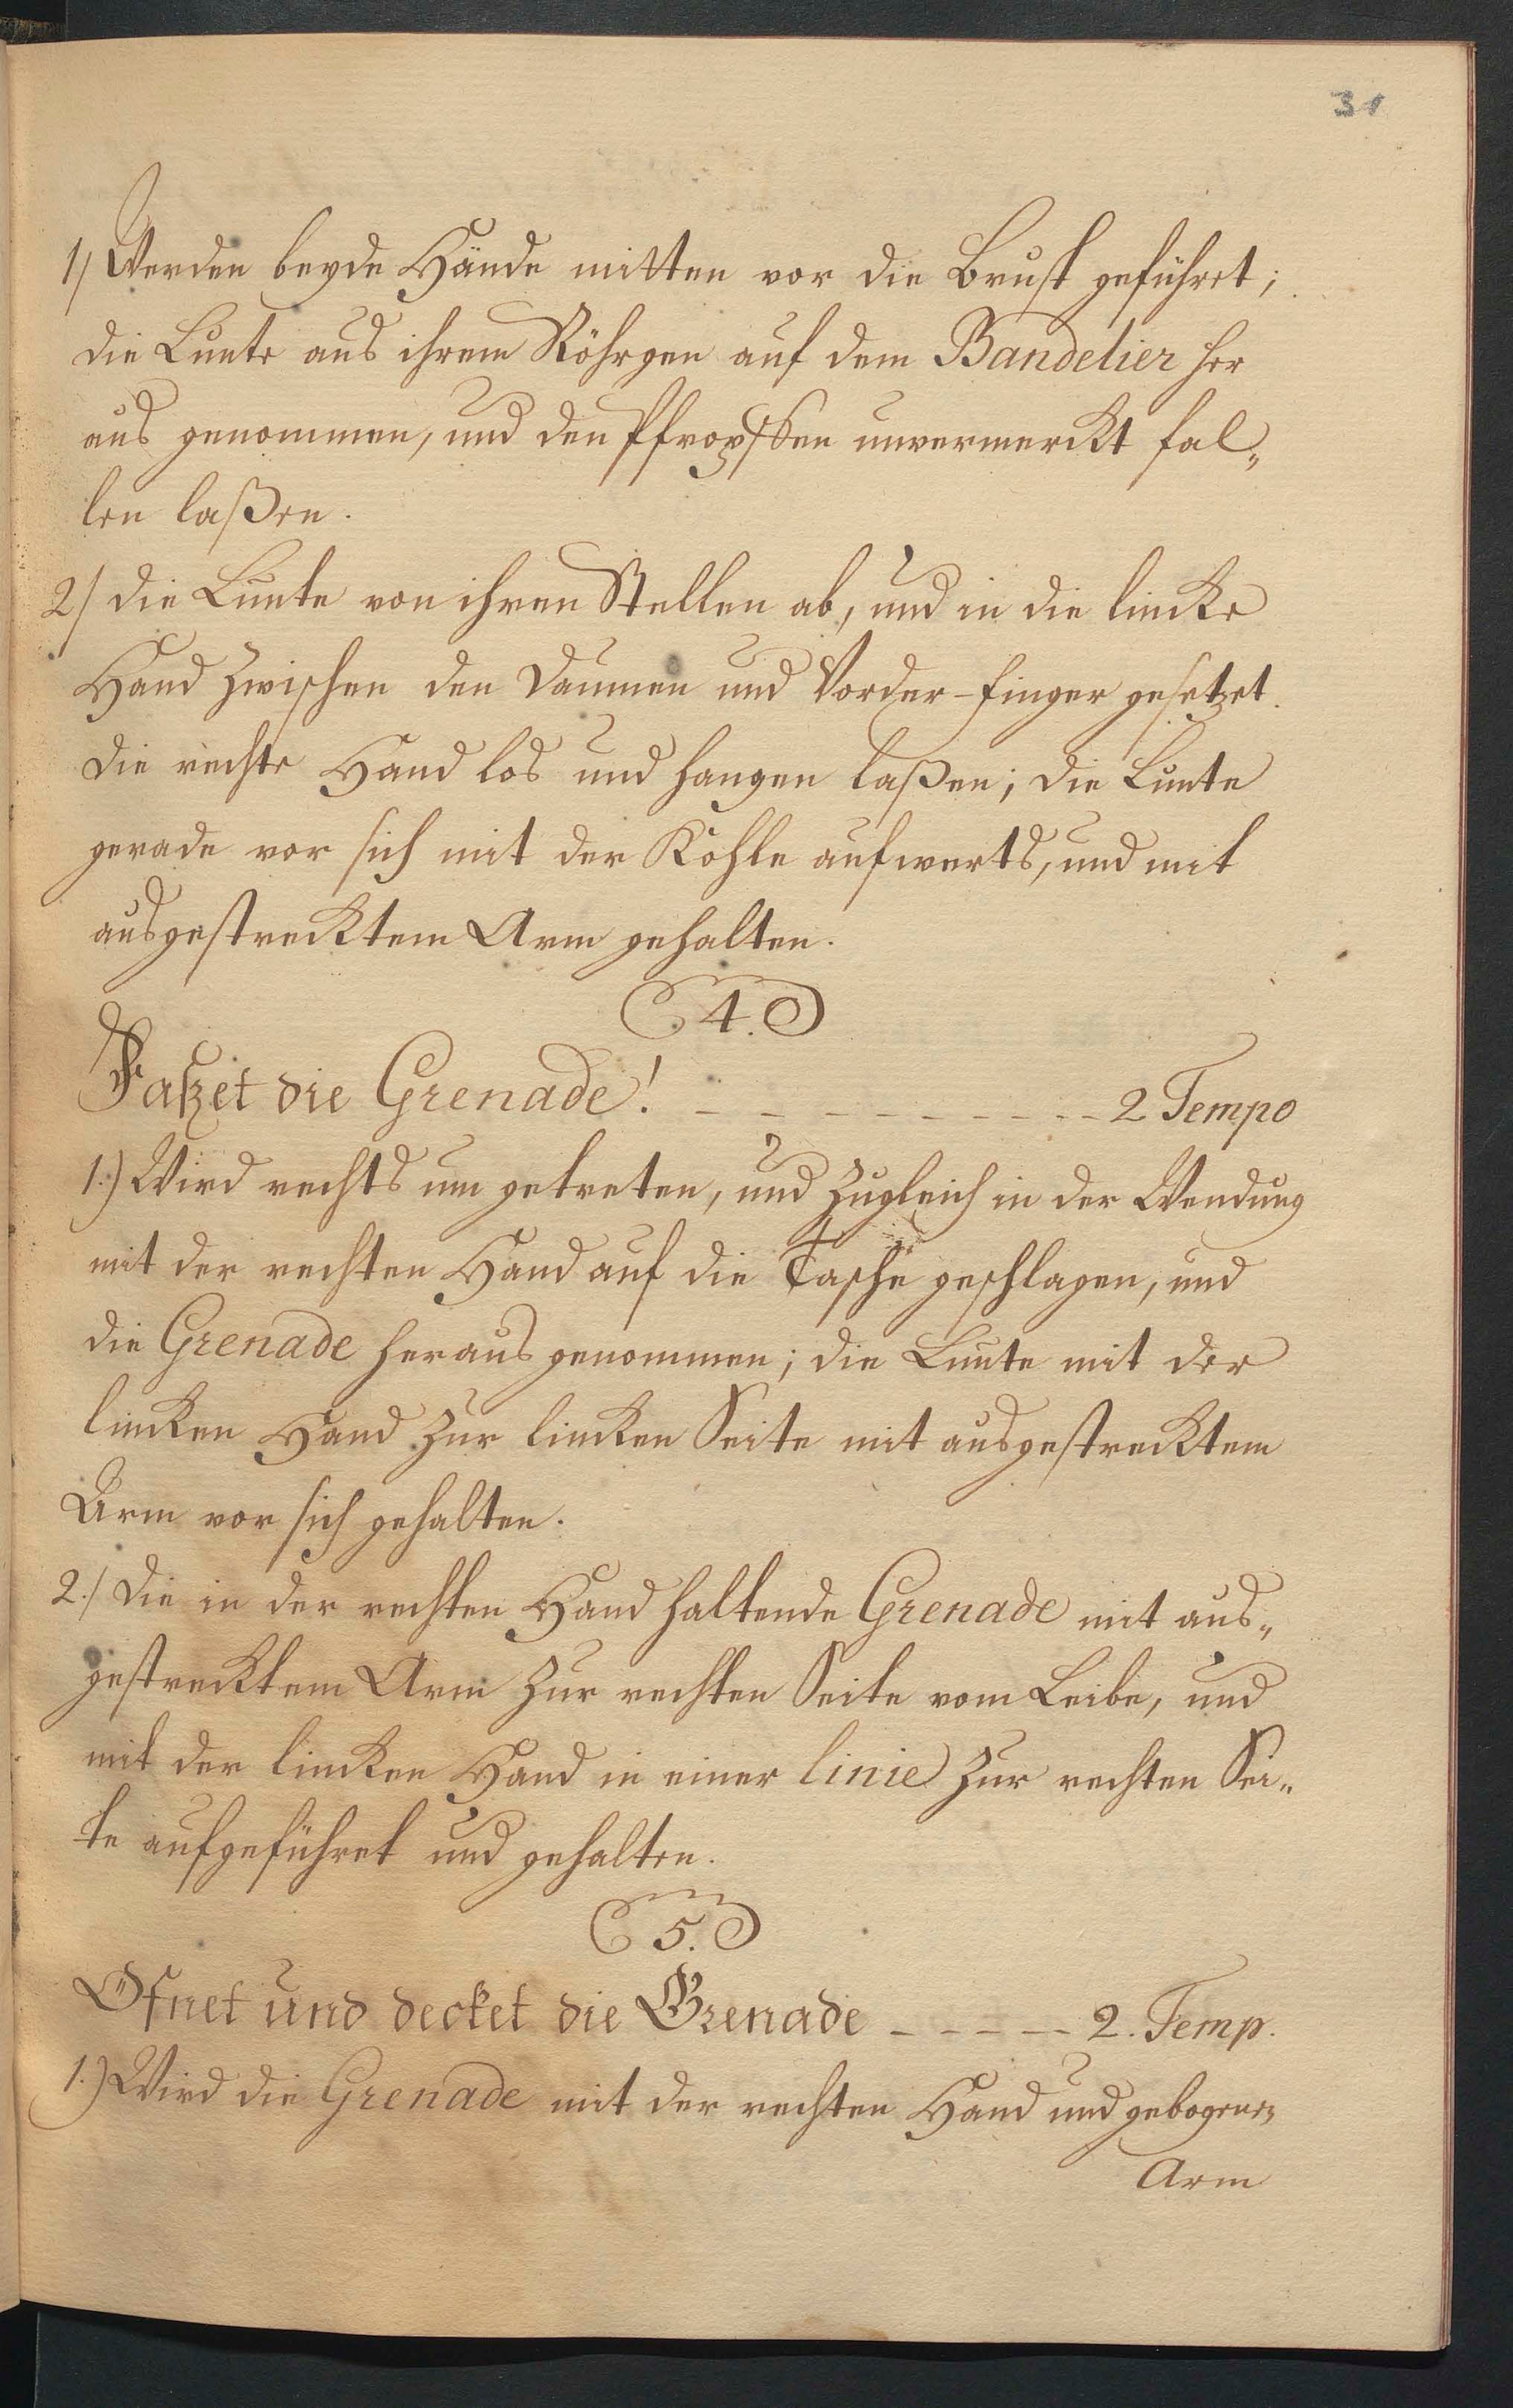 31
1/ Werden beyde Hände mitten vor die Brust geführt;
die Lunte aus ihrem Röhrgen auf dem Bandelier her
aus genommen, und den Pfropffen unvermerckt fal„
len laßen.
2/ die Lunte von ihren Stellen ab, und in die lincke
Hand zwischen den Daumen und Vorder-finger gesetzet.
die rechte Hand los und hangen laßen; die Lunte
gerade vor sich mit der Kohle aufwerts, und mit
ausgestrecktem Arm gehalten.
4.
Faßet die Grenade! - - - - - - - - - - 2 Tempo
1.) Wird rechts um getreten, und zugleich in der Wendung
mit der rechten Hand auf die Tasche geschlagen, und
die Grenade heraus genommen; die Lunte mit der
lincken Hand zur lincken Seite mit ausgestrecktem
Arm vor sich gehalten.
2./ die in der rechten Hand haltende Grenade mit aus„
gestrecktem Arm zur rechten Seite vom Leibe, und
mit der lincken Hand in einer linie zur rechten Sei„
te aufgeführet und gehalten.
5.
Öfnet und decket die Grenade - - - - - 2. Temp.
1.) Wird die Grenade mit der rechten Hand und gebogenen
Arm